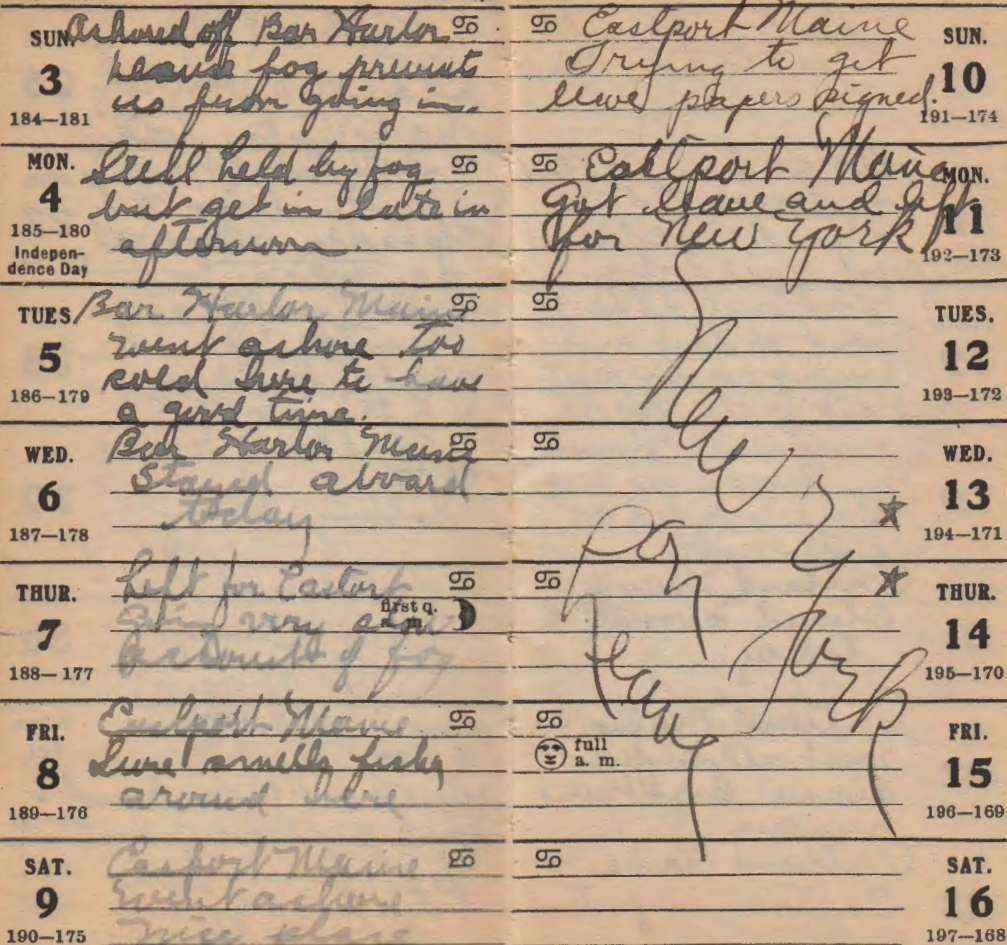 SUN.
3
184—181
Ashored off Bar Harbor
because fog prevents
us from going in.
19
MON.
4
185—180
Indepen-
dence Day
Still held by fog
but get in late in
afternoon.
19
TUES
5
186—179
Bar Harbor Maine
went ashore too
cold here to have
a good time.
19
WED.
6
187—178
Bar Harbor Maine
Stayed aboard
today
19
THUR.
7
188—177
Left for Eastort
Goin very slow
account of fog
19
first q.
a. m.
FRI.
8
189—176
Eastport Maine
Sure smells fishy
around here
19
SAT.
9
190—175
Easport Maine
went ashore
Nice place
19
19
Eastport Maine
Trying to get
leave papers signed.
SUN.
10
191—174
19
Eastport Maine
Got leave and left
for New York
MON.
11
192—173
19
TUES.
12
193—172
19
WED.
13
194—171
19
THUR.
14
195—170
New York
on
leave
19
full
a. m.
FRI.
15
196—169
19
SAT.
16
197—168